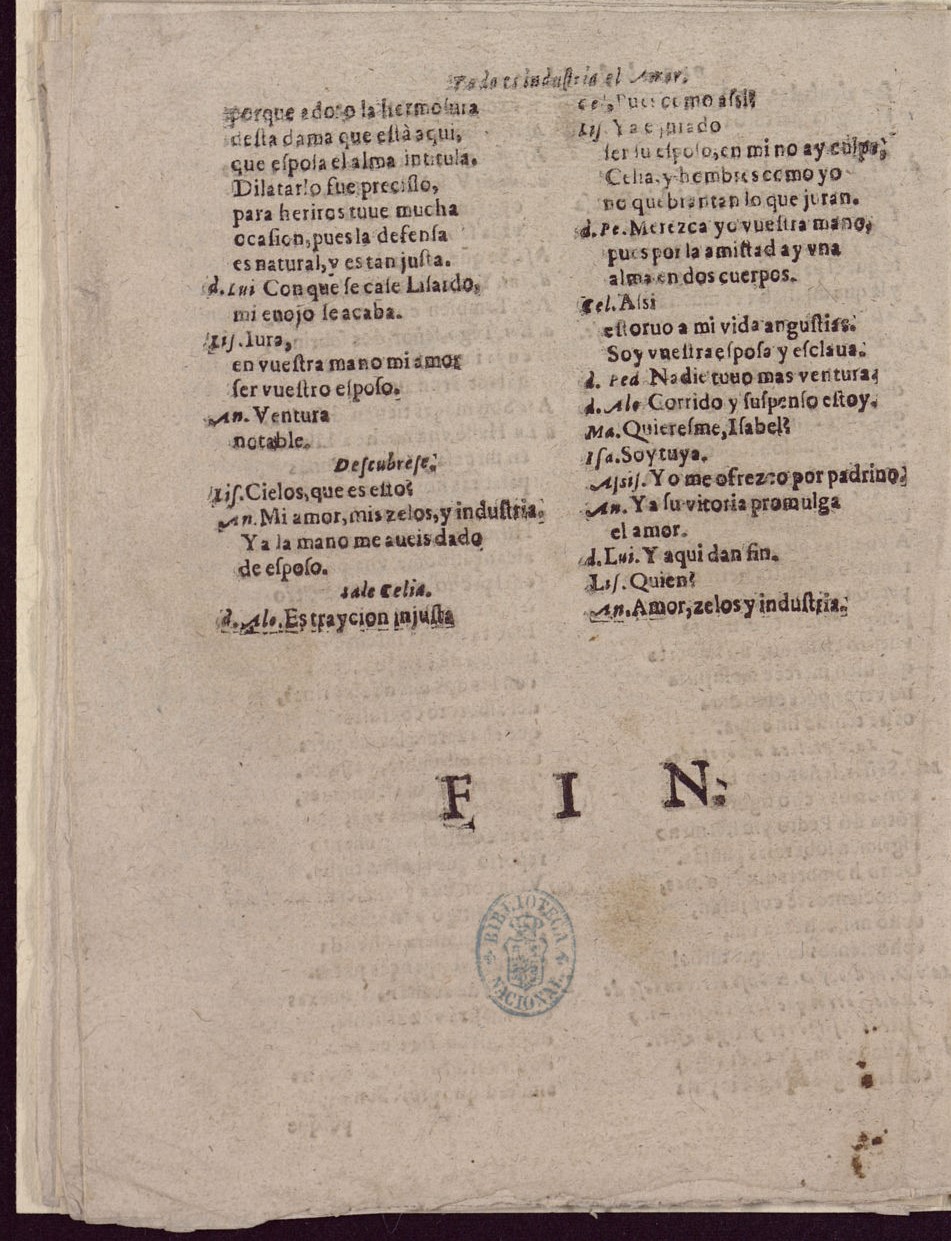 Todo es industria el Amor.
porque adoro la hermosura
desta dama que està aqui,
que esposa el alma intitula.
Dilatarlo fue precisso,
para heriros tuue mucha
ocasion, pues la defensa
es natural, y es tan justa.
d. Lui Con que se case Lisardo,
mi enojo se acaba.
Lis. Iura,
en vuestra mano mi amor
ser vuestro esposo.
An. Ventura
notable.
Descubrese.
Lis. Cielos, que es esto?
An. Mi amor, mis zelos, y industria.
Ya la mano me aueis dado
de esposo.
Sale Celia.
d. Alo. Es traycion injusta
Cel. Pues como assi?
Lis. Ya e jurado
ser su esposo, en mi no ay culpa,
Celia, y hombres como yo
no quebrantan lo que juran.
d. Pe. Merezca yo vuestra mano,
pues por la amistad ay vna
alma en dos cuerpos.
Cel. Assi
estoruo a mi vida angustias.
Soy vuestra esposa y esclaua.
d. Ped Nadie tuuo mas ventura.
d. Alo Corrido y suspenso estoy.
Ma. Quieresme, Isabel?
Isa. Soy tuya.
Assis. Yo me ofrezco por padrino.
An. Ya su vitoria promulga
el amor.
d. Lui. Y aqui dan fin.
Lis. Quien?
An. Amor, zelos y industria.
F I N.
BIBLIOTECA
NACIONAL